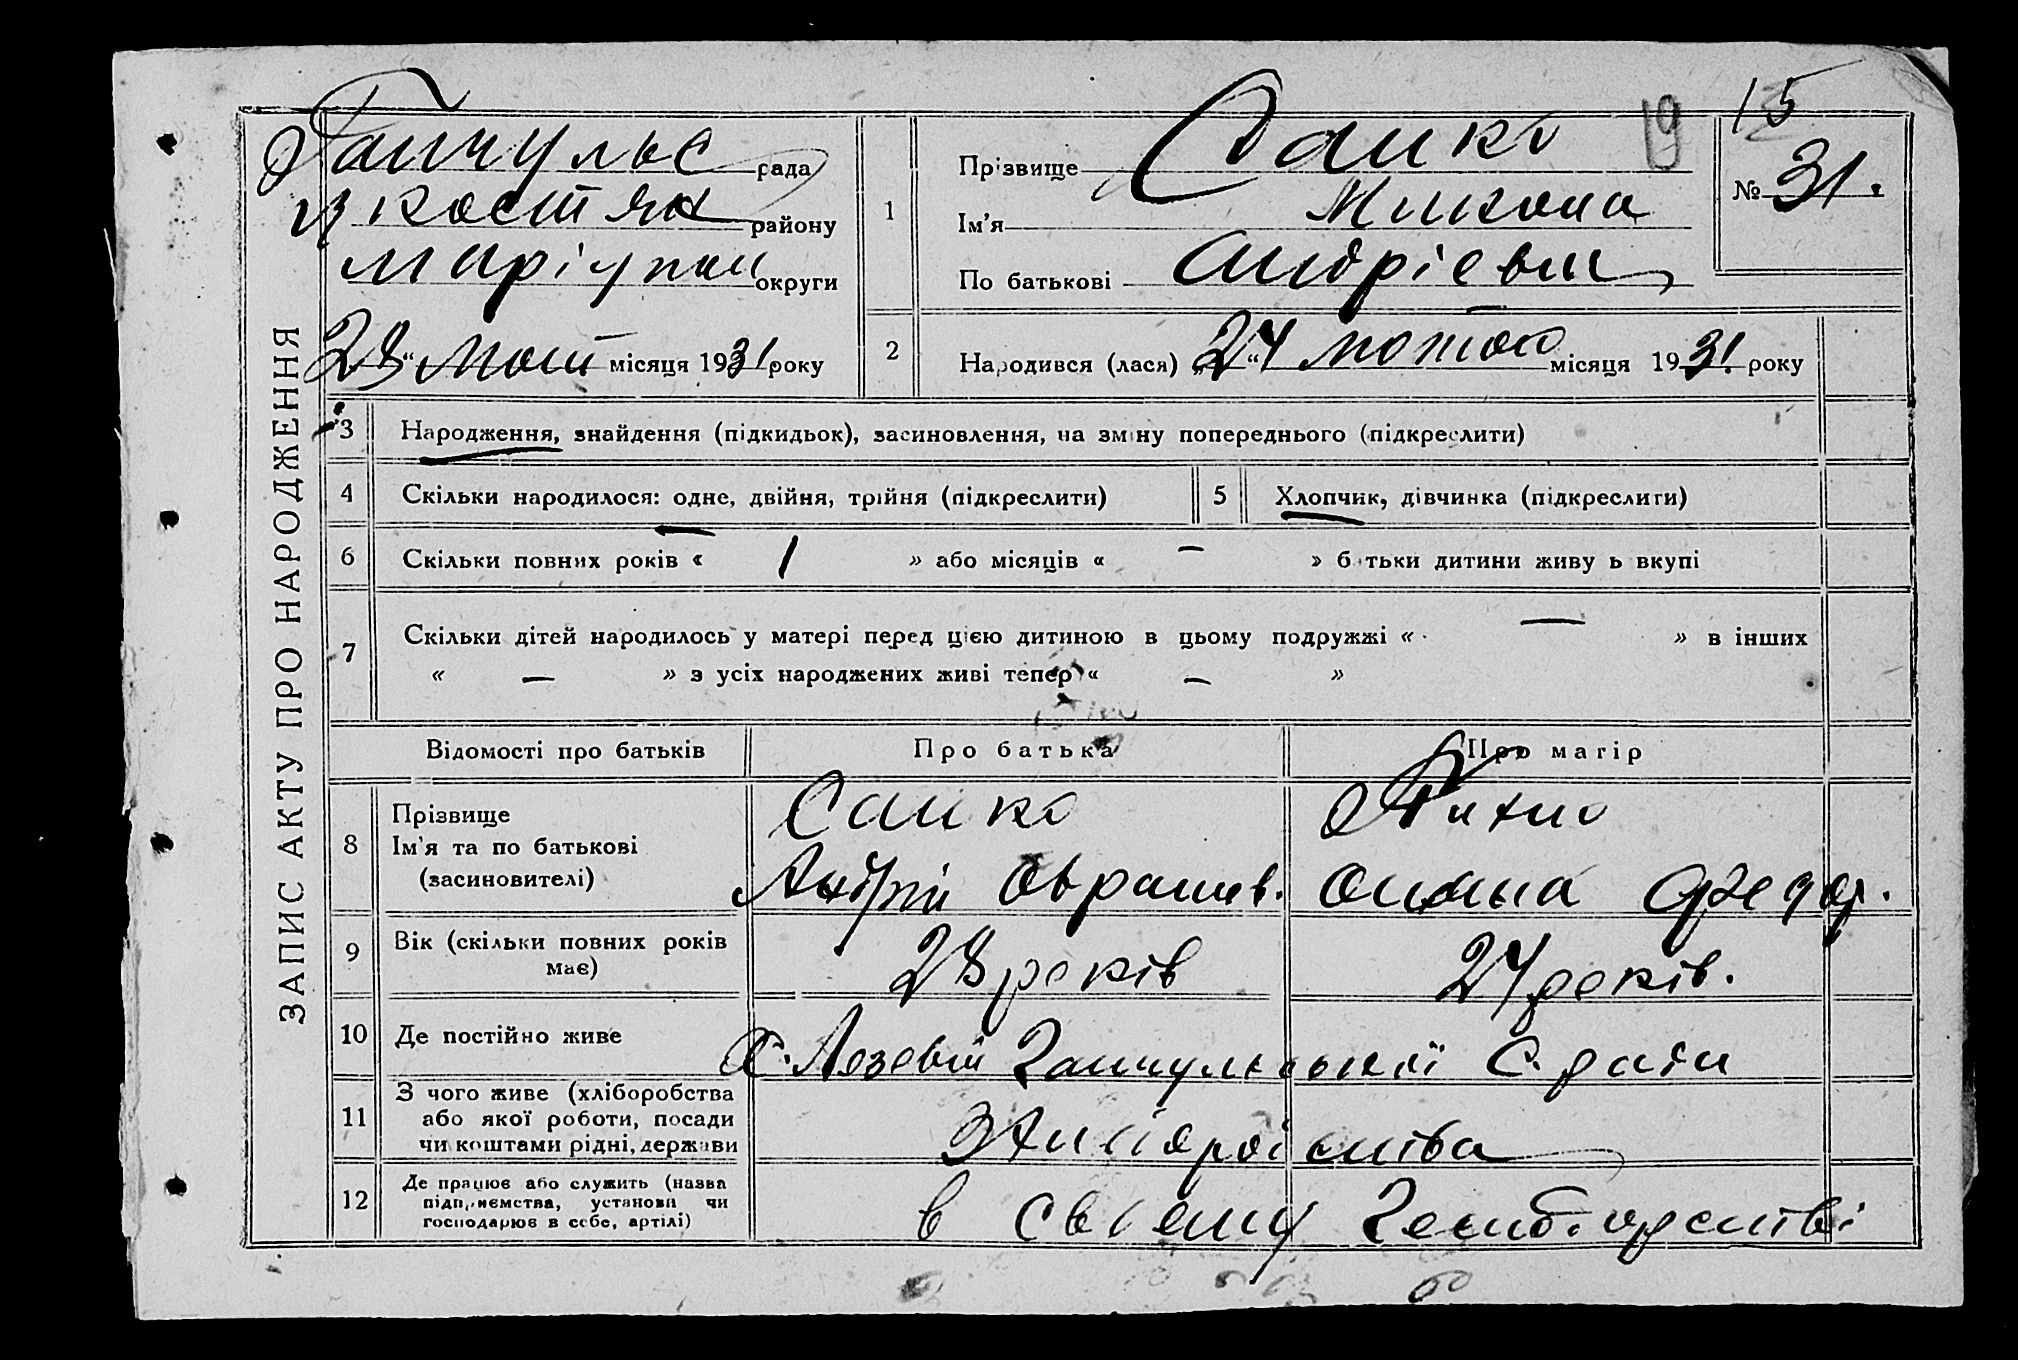 ЗАПИС АКТУ ПРО НАРОДЖЕННЯ
Гайчульс рада
района
Маріупол округи
28 “ Лют місяця 1931 року
1
Прізвище Сайко
Ім'я Микола
По батькові Андрієвич
19
15
№ 31.
2
Народився (лася) „24“ лютого місяця 1931. року
3 Народження, знайдення (підкидьок), засиновлення, на зміну попереднього (підкреслити)
4 Скільки народилося: одне, двійня, трійня (підкреслити)
5 Хлопчик, дівчинка (підкреслити)
6 Скільки повних років « 1 » або місяців « — » батьки дитини живуть вкупі
7 Скільки дітей народилось у матері перед цією дитиною в цьому подружжі « — » в інших
« — » з усіх народжених живі тепер « — »
Відомості про батьків
Про батька
Про матір
8 Прізвище
Ім'я та по батькові
(засиновителі)
Сайко
Андрій
Федор.
9 Вік (скільки повних років
має)
28 років
24 років.
10 Де постійно живе
Х. Лозовій Гайчульської С. ради
11 З чого живе (хліборобства
або якої роботи, посади
чи коштами рідні, держави
12 Де працює або служить (назва
підприємства, установи чи
господарює в себе, артілі)
в своему